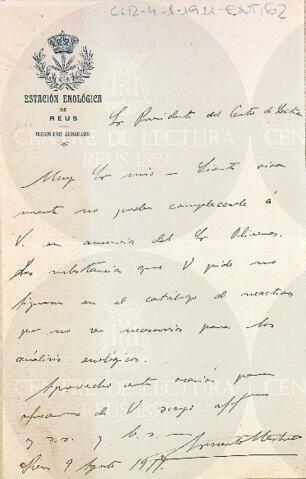 CLR-4-1-1911-ENT/62
ESTACIÓN ENOLÓGICA
DE
REUS
INGENIERO
Sr Presidente del Centro de Lectura
CENTRE DE LECTURA
REUS 1859
Muy Sr mio = Siento viva
mente no poder complacerle á
V. en ausencia del Sr Oliveras.
Las substancias que V pide no
figuran en el catálogo de reactivos
por no ser necesarios para los
análisis enológicos.
Aprovecho esta ocasión para
ofrecerme de V suyo affmo
y s.s. q b. s.
Reus 9 Agosto 1911